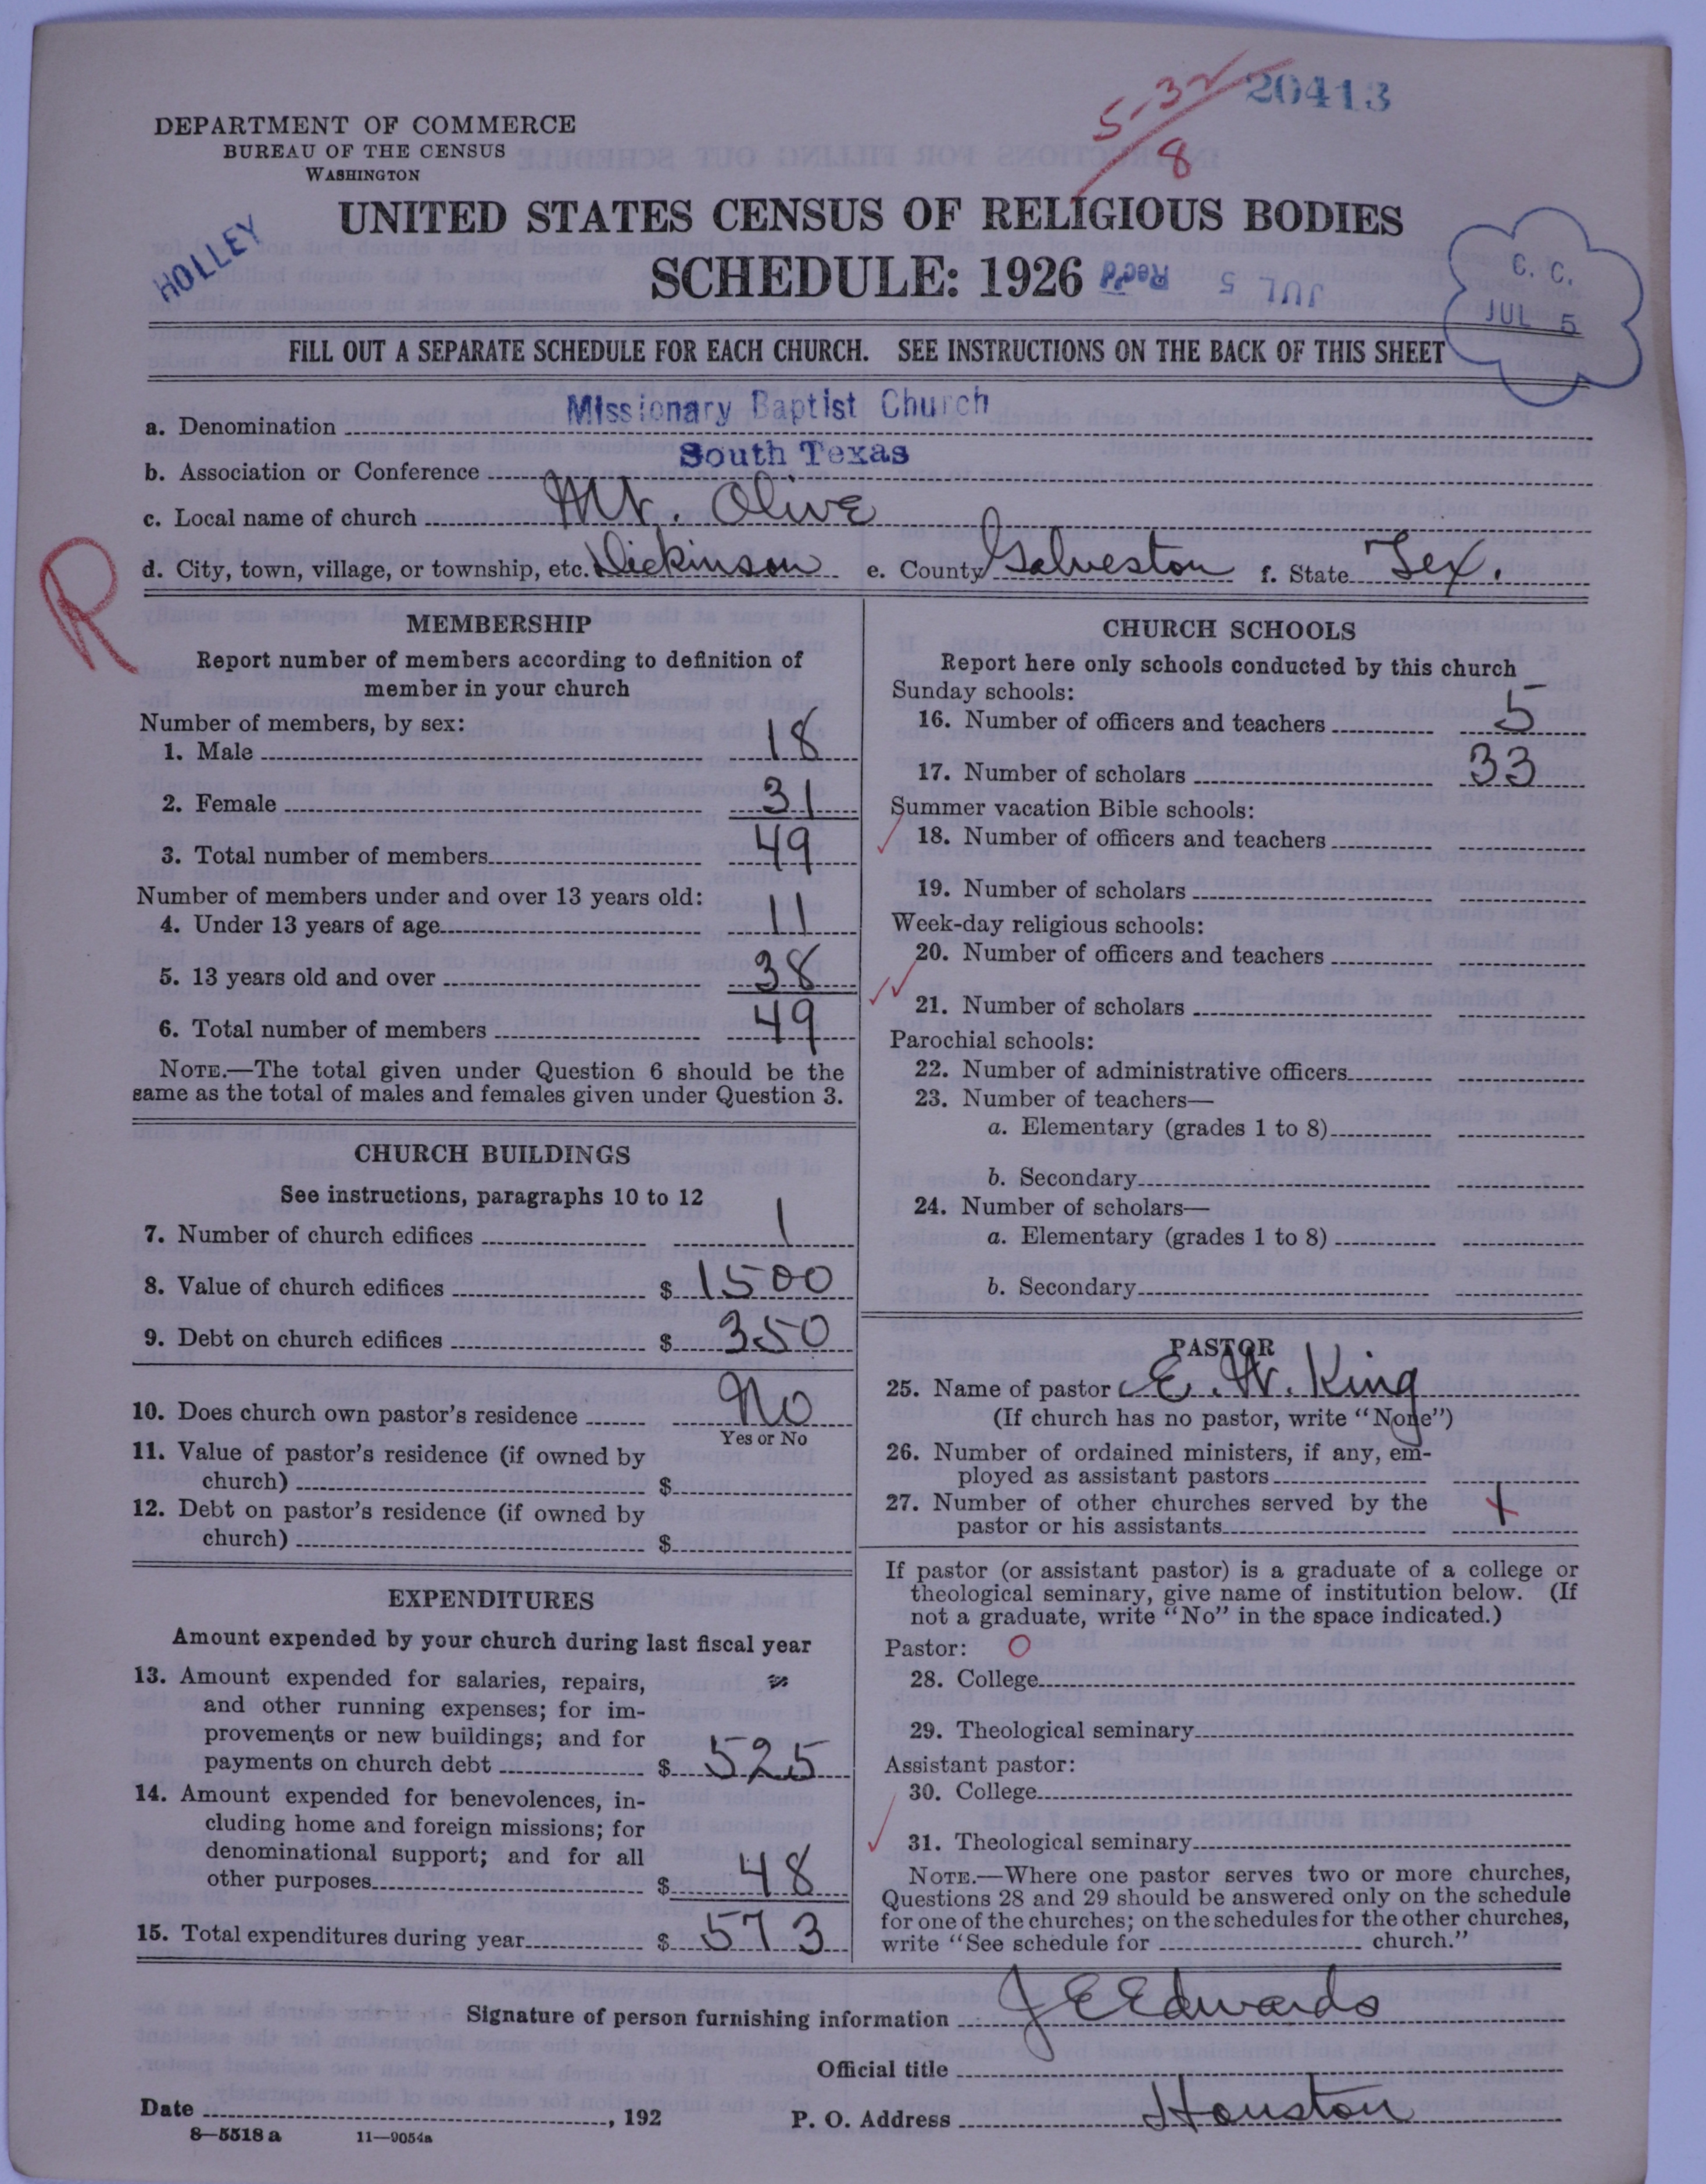 20413
5-32
8
DEPARTMENT OF COMMERCE
BUREAU OF THE CENSUS
WASHINGTON
HOLLEY
UNITED STATES CENSUS OF RELIGIOUS BODIES
SCHEDULE: 1926
JUL 5 Rec'd
C. C.
JUL 5
FILL OUT A SEPARATE SCHEDULE FOR EACH CHURCH. SEE INSTRUCTIONS ON THE BACK OF THIS SHEET
a. Denomination Missionary Baptist Church
b. Association or Conference South Texas
c. Local name of church Mt. Olive
d. City, town, village, or township, etc. Dickinson e. County Galveston f. State Tex.
R
MEMBERSHIP
Report number of members according to definition of
member in your church
Number of members, by sex:
1. Male 18
2. Female 31
3. Total number of members 49
Number of members under and over 13 years old:
4. Under 13 years of age 11
5. 13 years old and over 38
6. Total number of members 49
NOTE.—The total given under Question 6 should be the
same as the total of males and females given under Question 3.
CHURCH BUILDINGS
See instructions, paragraphs 10 to 12
7. Number of church edifices 1
8. Value of church edifices $ 1500
9. Debt on church edifices $ 350
10. Does church own pastor's residence No
Yes or No
11. Value of pastor's residence (if owned by
church) $
12. Debt on pastor's residence (if owned by
church) $
EXPENDITURES
Amount expended by your church during last fiscal year
13. Amount expended for salaries, repairs,
and other running expenses; for im-
provements or new buildings; and for
payments on church debt $ 525
14. Amount expended for benevolences, in-
cluding home and foreign missions; for
denominational support; and for all
other purposes $ 48
15. Total expenditures during year $ 573
CHURCH SCHOOLS
Report here only schools conducted by this church
Sunday schools:
16. Number of officers and teachers 5
17. Number of scholars 33
Summer vacation Bible schools:
18. Number of officers and teachers
19. Number of scholars
Week-day religious schools:
20. Number of officers and teachers
21. Number of scholars
Parochial schools:
22. Number of administrative officers
23. Number of teachers—
a. Elementary (grades 1 to 8)
b. Secondary
24. Number of scholars—
a. Elementary (grades 1 to 8)
b. Secondary
PASTOR
25. Name of pastor E. W. King
(If church has no pastor, write "None")
26. Number of ordained ministers, if any, em-
ployed as assistant pastors
27. Number of other churches served by the
pastor or his assistants 1
If pastor (or assistant pastor) is a graduate of a college or
theological seminary, give name of institution below. (If
not a graduate, write "No" in the space indicated.)
Pastor: O
28. College
29. Theological seminary
Assistant pastor:
30. College
31. Theological seminary
NOTE.—Where one pastor serves two or more churches,
Questions 28 and 29 should be answered only on the schedule
for one of the churches; on the schedules for the other churches,
write "See schedule for church."
Signature of person furnishing information J E Edwards
Official title
Date , 192 P. O. Address Houston
8—5518 a 11—9054a